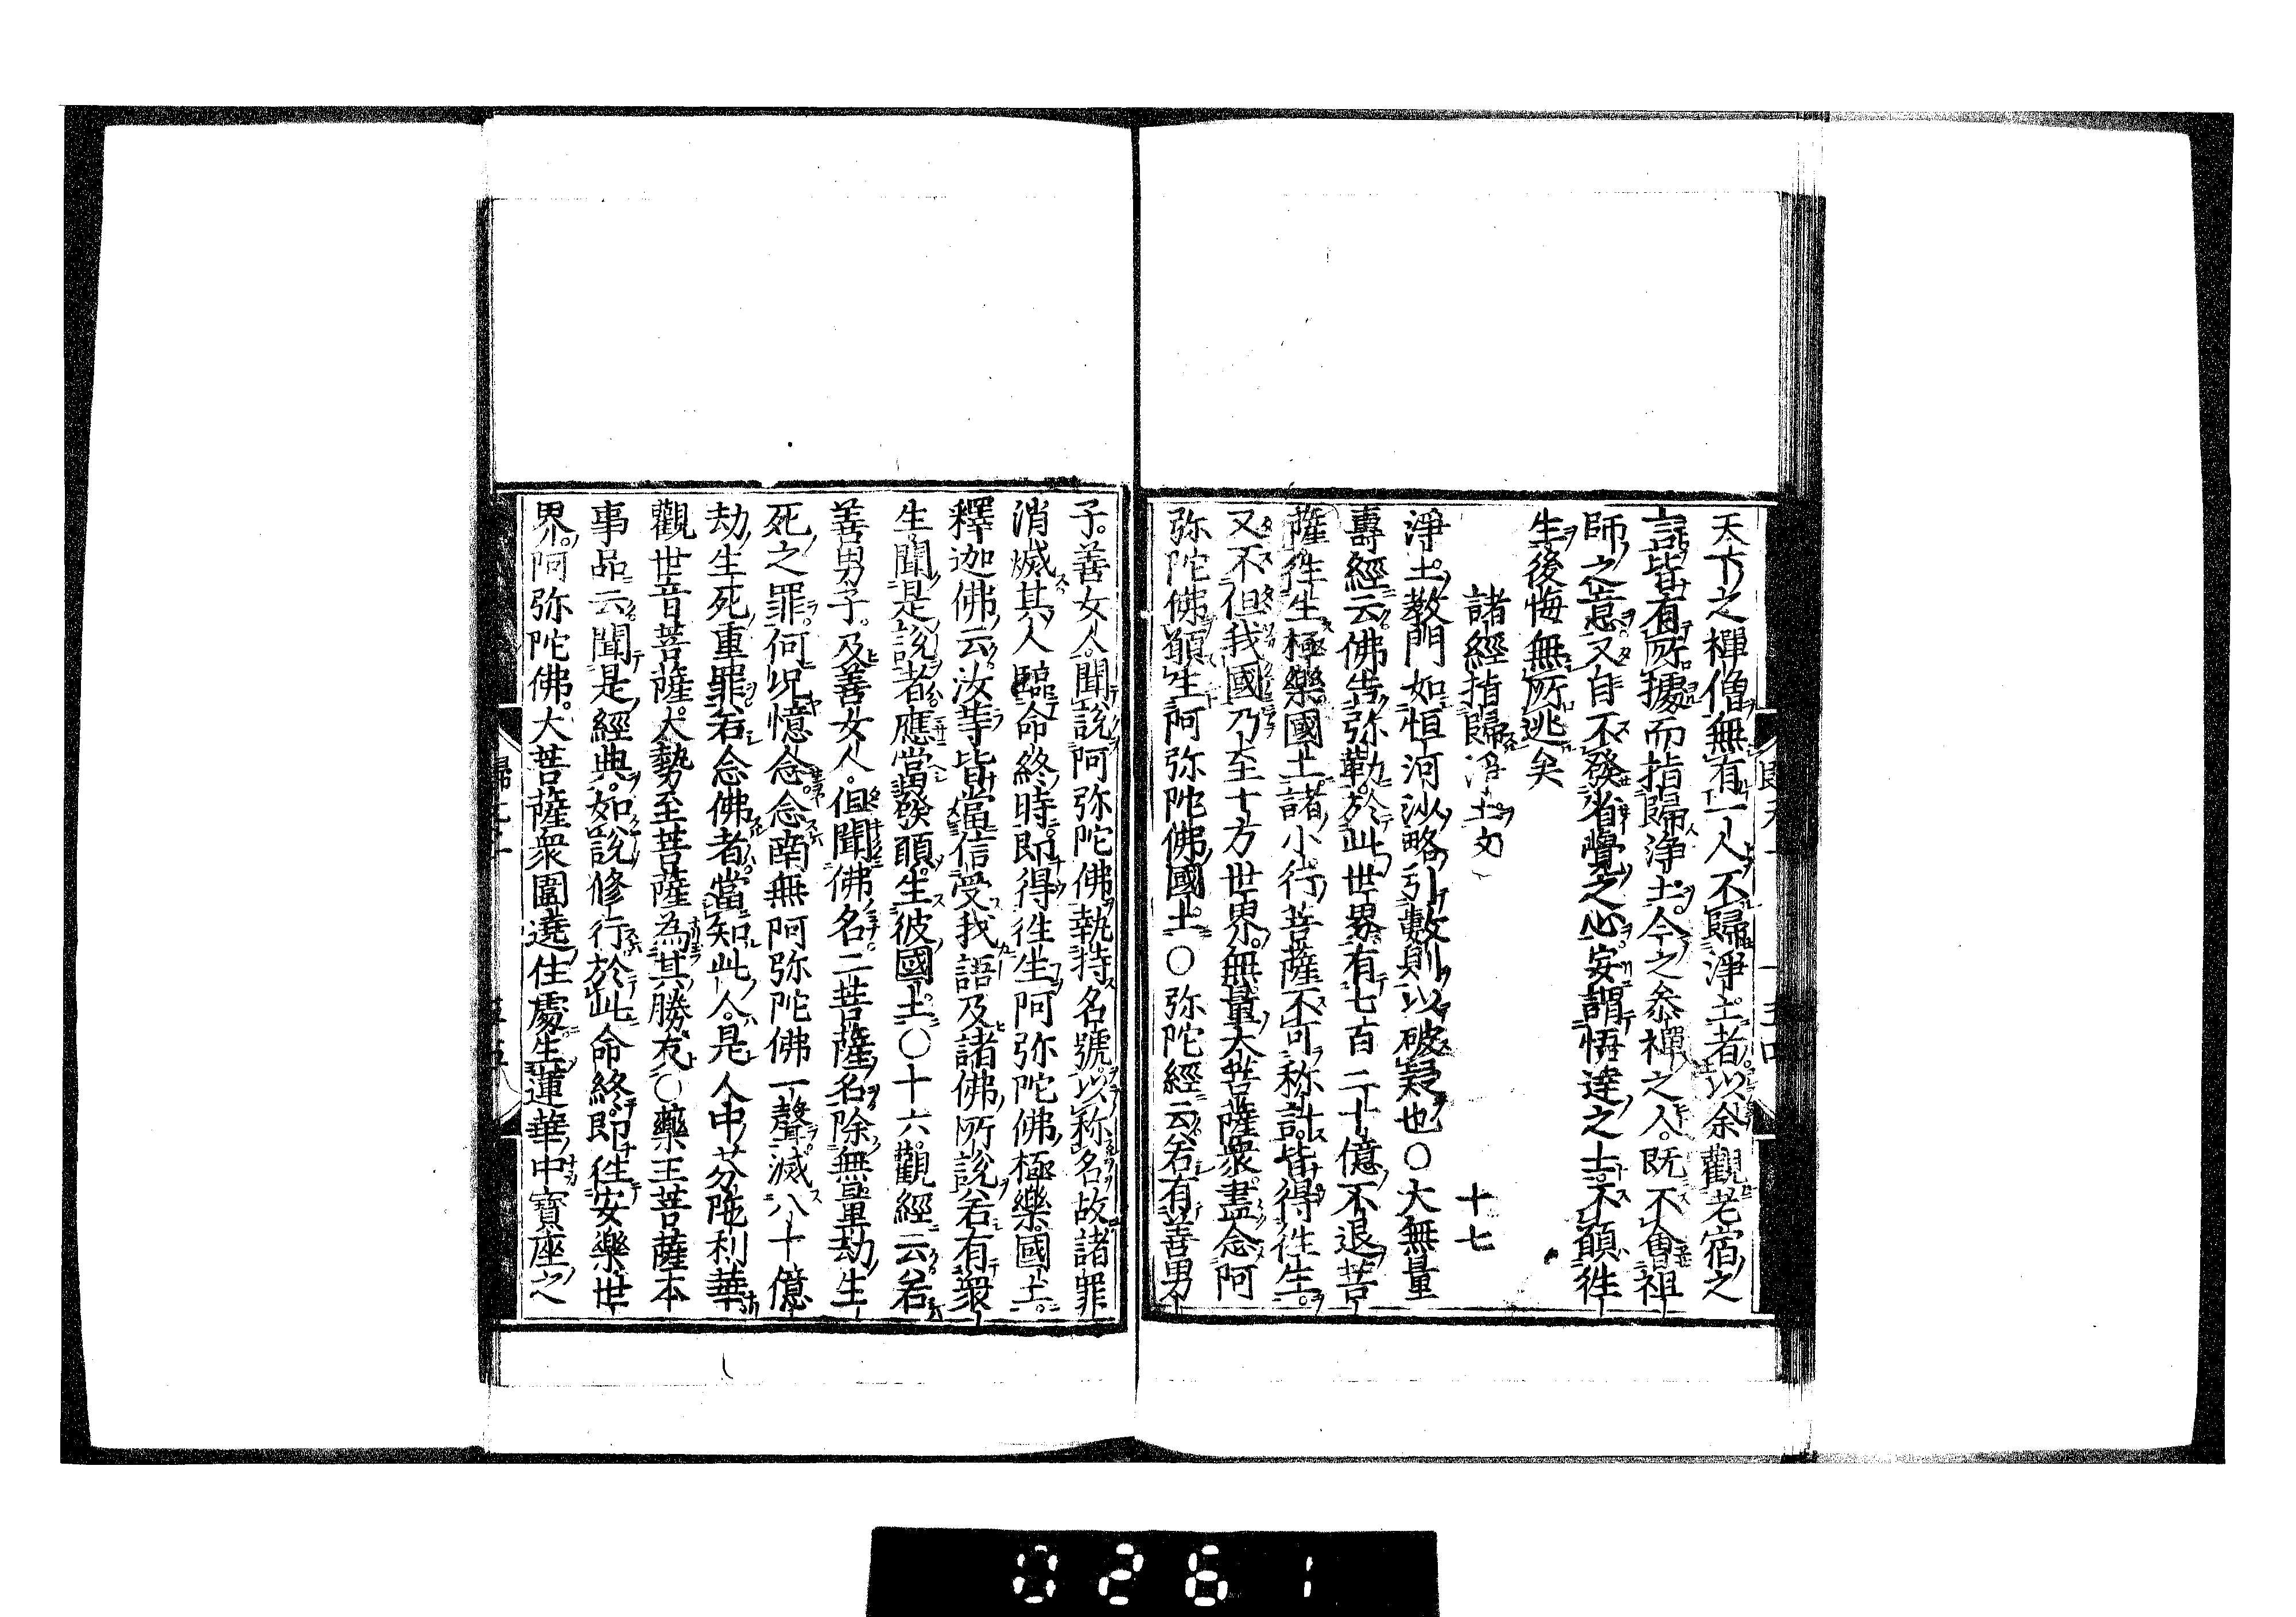 天下之禪僧無有一人不歸淨土者以余觀老宿之
言皆有所據而指歸淨土今之叅禪之人既不會祖
師之意又自不發省覺之心妄謂悟達之士不願徃
生後悔無所逃矣
諸經指歸淨土文 十七
淨土教門如恒河沙略引數則以破疑也○大無量
壽經云佛告弥勒於此世界有七百二十億不退菩
薩徃生極樂國土諸小行菩薩不可称計皆得徃生
又不但我國乃至十方世界無量大菩薩衆盡念阿
弥陀佛願生阿弥陀佛國土○弥陀經云若有善男
子善女人聞說阿弥陀佛執持名號以称名故諸罪
消滅其人臨命終時即得徃生阿弥陀佛極樂國土
釋迦佛云汝等皆當信受我語及諸佛所說若有衆
生聞是說者應當發願生彼國土○十六觀經云若
善男子及善女人但聞佛名二菩薩名除無量劫生
死之罪何况憶念念南無阿弥陀佛一聲滅八十億
劫生死重罪若念佛者當知此人是人中芬陁利華
觀世音菩薩大勢至菩薩為其勝友○藥王菩薩本
事品云聞是經典如說修行於此命終即徃安樂世
界阿弥陀佛大菩薩衆圍遶住處生蓮華中寶座之
0261